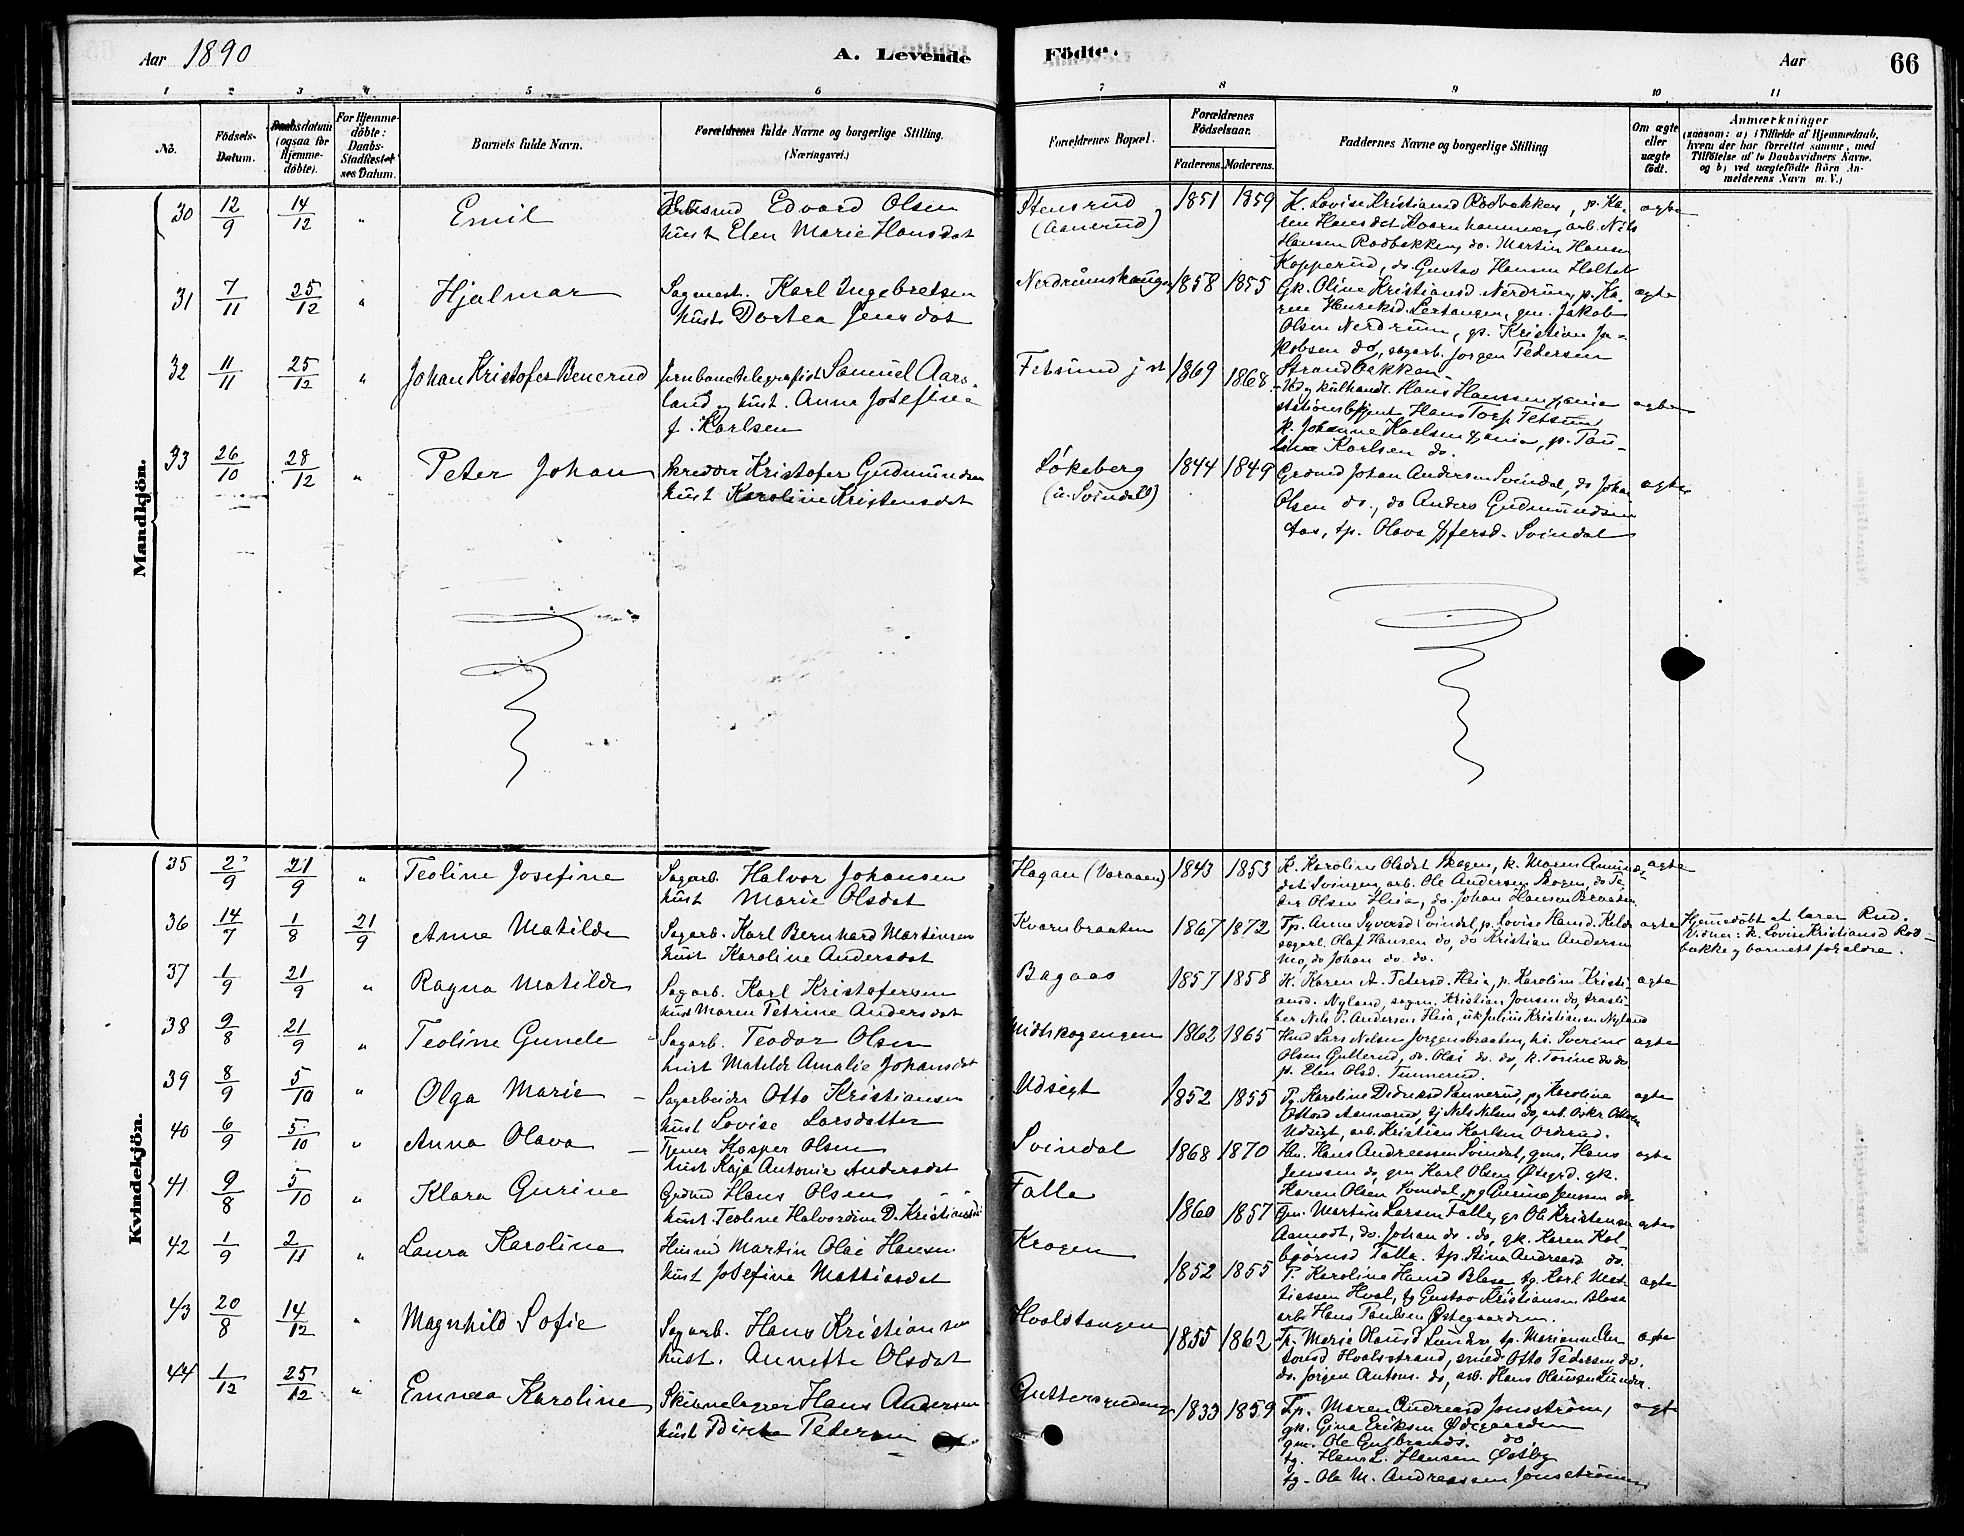 Aar 1890
A. Levende
Födte.
Aar
66
1 2 3 4 5 6 7 8 9 10 11
No.
Födsels-Datum.
Daabsdatum (ogsaa for Hjemmedöbte).
For Hjemmedöbte: Daabs-Stadfæstelsens Datum.
Barnets fulde Navn.
Forældrenes fulde Navne og borgerlige Stilling.
(Næringsvei.)
Forældrenes Bopæl.
Forældrenes Födselsaar.
Faderens. Moderens.
Faddernes Navne og borgerlige Stilling
Om ægte eller uægte födt.
Anmærkninger
(saasom: a) i Tilfælde af Hjemmedaab,
hvem der har forrettet samme, med
Tilföielse af to Daabsvidners Navne,
og b) ved uægtefödte Börn Anmelderens Navn m. V.)
Mandkjön.
30 12/9 14/12 " Emil
Edvard Olsen
hust Elen Marie Hansdat
Stensrud
(Aanerud)
1851 1859
K. Lovise Kristiansd Rodbakken, p. Ka-
ren Hansdat Kvarnhammer, arb. Nils
Hansen Rodbakken, do. Martin Hansen
Kopperud, do. Gustav Hansen Holtet
ægte
31 7/11 25/12 " Hjalmar
Sagmest. Karl Ingebretsen
hust Dortea Jensdat
Nerdrumshaugen
1858 1855
Gk. Oline Kristiansd Nerdrum, p. Ka-
ren Henriksd Lertangen, gm. Jakob
Olsen Nerdrum, gs. Kristian Ja-
kobsen do, sagarb. Jörgen Pedersen
Strandbakken
ægte
32 11/11 25/12 " Johan Kristofer Benerud
Jernbanetelegrafist Samuel Aars-
land og hust. Anna Josefine
f. Karlsen
Fetsund j st
1869 1868
kulhandl. Hans Hanssen Xania
stationsbetjent Hans Torp Fetsund
k. Johanne Karlsen Xania, p. Pau-
line Karlsen do.
ægte
33 26/10 28/12 " Peter Johan
Skredder Kristofer Gudmundsen
hust Karoline Kristensdat
Lökeberg
(u. Svindal)
1844 1849
Grdmd Johan Andersen Svindal, do Johan
Olsen do., do Anders Gudmundsen
Aas, tp. Olava Xffersd. Svindal
ægte
Kvindekjön.
35 2/9 21/9 " Teoline Josefine
Sagarb. Halvor Johansen
hust Marie Olsdat
Hagan (Varaaen)
1843 1853
K. Karoline Olsdat Skogen, k. Maren Amunds-
dat Svingen, arb. Ole Andersen Skogen, do Pe-
der Olsen Heia, do. Johan Hansen Braaten
ægte
36 14/7 1/8 21/9 Anne Matilde
Sagarb. Karl Bernhard Martinsen
hust Karoline Andersdat
Kvarnbraaten
1867 1872
Tp. Anne Syversd Svindal, p. Lovise Hansd.
sagarb. Olaf Hansen do, do Kristian Andersen
Mo, do Johan do. do.
ægte
Hjemmedöbt af lærer Rud.
Vidner: k. Lovise Kristiansd Rod-
bakken og barnets forældre.
37 1/9 21/9 " Ragna Matilde
Sagarb. Karl Kristofersen
hust Maren Petrine Andersdat
Bagaas
1857 1858
K. Karen A. Petersd. Heia, p. Karoline Kristi-
ansd. Nyland, sagm. Kristian Jonsen do,
Nils P. Andersen Heia, uk Julius Kristiansen Nyland
ægte
38 9/8 21/9 " Teoline Gunele
Sagarb. Teodor Olsen
hust Matilde Amalie Johansdat
Midtskogengen
1862 1865
Hmd Lars Nilsen Jörgensbraaten, hs. Sverine
Olsen Gulterud, do. Olai do. do, k. Torine do do
p. Elen Olsd. Tunnerud.
ægte
39 8/9 5/10 " Olga Marie
Sagarbeider Otto Kristiansen
hust Lovise Larsdatter
Udsigt
1852 1855
Pg. Karoline Pannerud, pg Karoline
Ottosd Aannerud, Nils Nilsen do, arb. Olsen
Udsigt, arb. Kristian Karlsen Orderud.
ægte
40 6/9 5/10 " Anna Olava
Tjener Kasper Olsen
hust Kaja Antonie Andersdat
Svindal
1868 1870
Hm. Hans Andreassen Svindal, gm. Hans
Jenssen do, gm Karl Olsen Östgrd. gk.
Karen Olsen Svindal, pg Gurine Jenssen do.
ægte
41 9/8 5/10 " Klara Gurine
Grdmd Hans Olsen
hust. Teoline Halvordine D. Kristiansd
Falla
1860 1857
Gm. Martin Larsen Falle, gs Ole Kristensen
Aamodt, do. Johan do. do, gk. Karen Kol-
björnsd Falla. tp. Stina Andreasd do.
ægte
42 1/9 2/11 " Laura Karoline
Husmd Martin Olai Hansen
hust Josefine Mattiasdat
Krogen
1852 1855
P. Karoline Hansd Blæsa tg. Karl Mat-
tiassen Hval, tg Gustav Kristiansen Blæsa
arb Hans Paulsen Östegaarden.
ægte
43 20/8 14/12 " Magnhild Sofie
Sagarb. Hans Kristiansen
hust. Annette Olsdat
Hvalstangen
1855 1862
Tp. Marie Hansd Sundby, tp. Marianne An-
tonsd Hvalsstrand, smed Otto Pedersen do.
do. Jörgen Antons. do, arb. Hans Olausen Sunder.
ægte
44 1/12 25/12 " Emma Karoline
Skinnelægger Hans Andersen
hust Birthe Pedersen
Guttersrudeng
1833 1859
Tp. Maren Andreasd Jonsström,
gk. Gina Eriksen Ödegaarden
gm. Ole Gulbrands. do.
tg. Hans L. Hansen Östby
tg. Ole M. Andreassen Jonsström
ægte